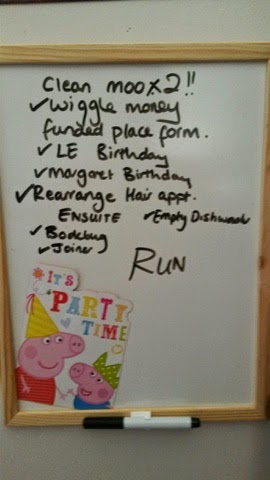 Clean moo x2!!
✓Wiggle money
funded place form.
✓LE Birthday
✓margaret Birthday
✓Rearrange Hair appt.
ENSUITE ✓Empty Dishwash
✓Bodebug
✓Joiner
RUN
IT'S
PARTY
TIME